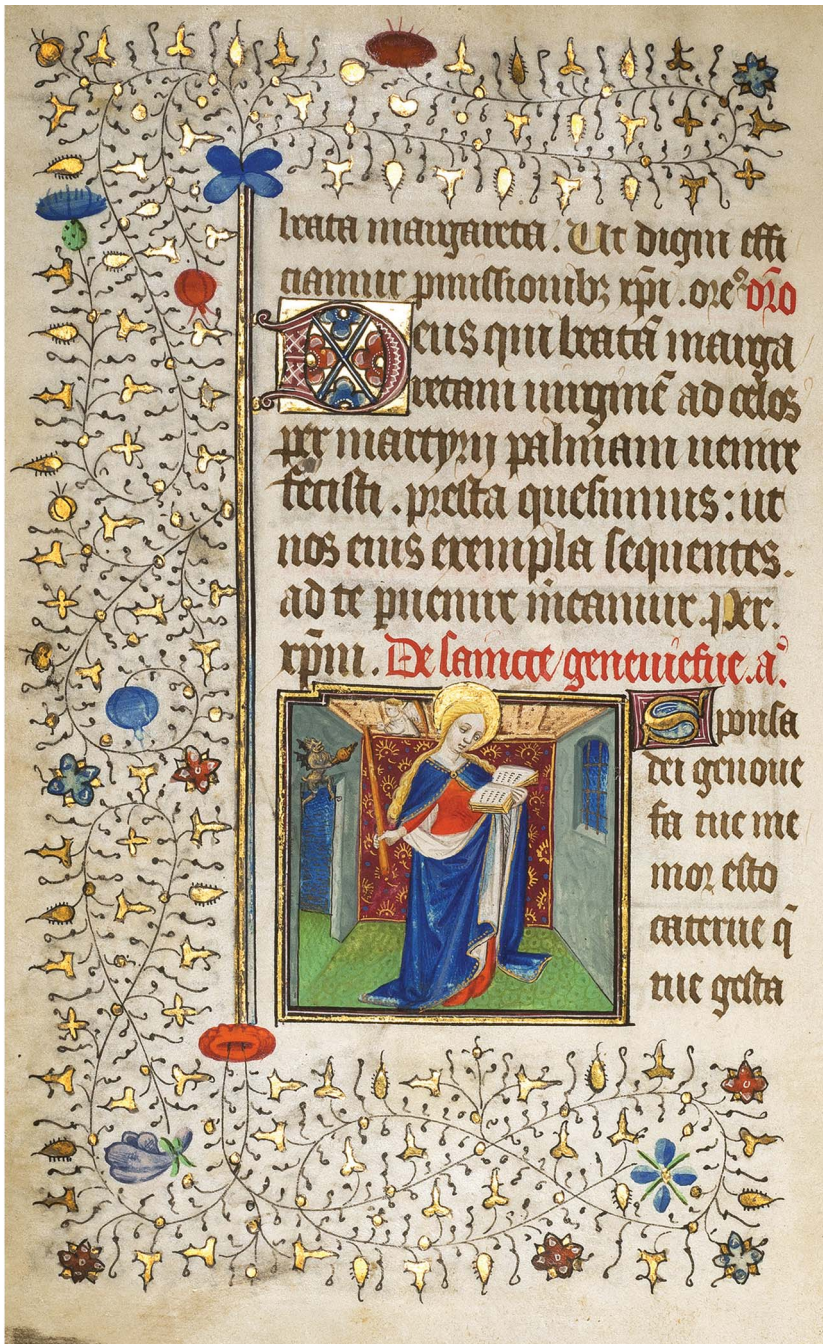 beata margareta. Ut digni effi
ciamur pmissionibꝫ xp̄i. oreꝰ or̄o
Deus qui beatā marga
retam uirginē ad celos
per martyrij palmam uenire
fecisti. presta quesumus: ut
nos eius exempla sequentes.
ad te puenire mēamur. per.
xp̄m. De sancte geneuiefue. aꝰ.
Sponsa
dei genoue
fa tue me
mor esto
caterue q̄
tue gesta